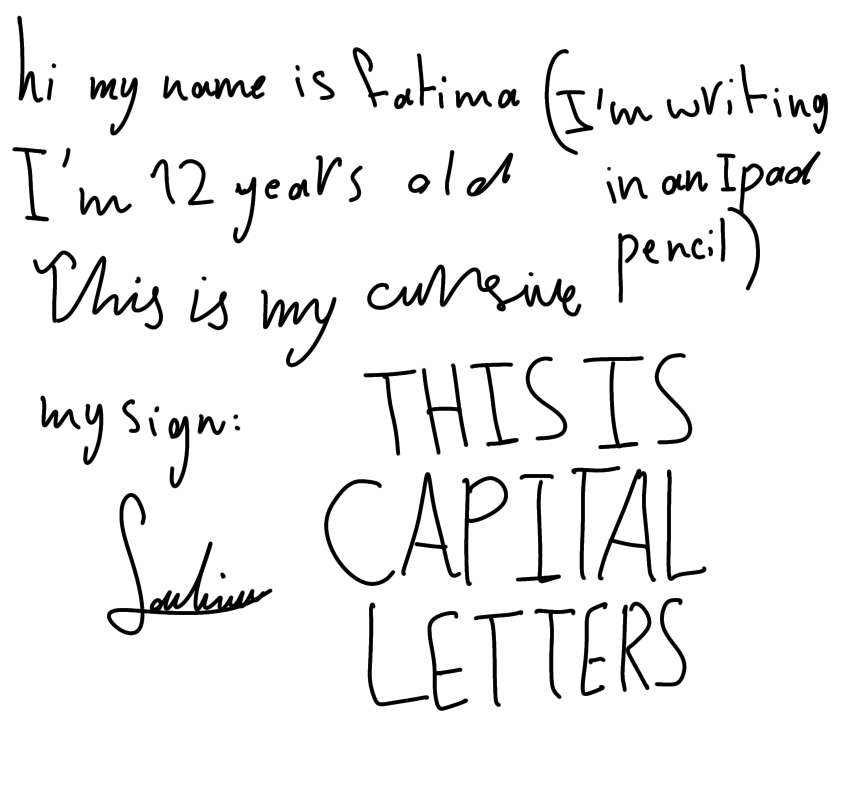 hi my name is fatima (I'm writing
in an Ipad
pencil)
I'm 12 years old
This is my cursive
my sign:
THIS IS
CAPITAL
LETTERS